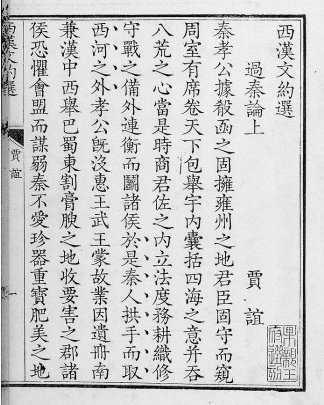 西漢文約選
過秦論上
賈誼
秦孝公據殽函之固擁雍州之地君臣固守而窺
周室有席卷天下包舉宇內囊括四海之意并吞
八荒之心當是時商君佐之內立法度務耕織修
守戰之備外連衡而鬬諸侯於是秦人拱手而取
西河之外孝公旣沒惠王武王蒙故業因遺冊南
兼漢中西舉巴蜀東割膏腴之地收要害之郡諸
侯恐懼會盟而謀弱秦不愛珍器重寶肥美之地
西漢文約選
賈誼
一